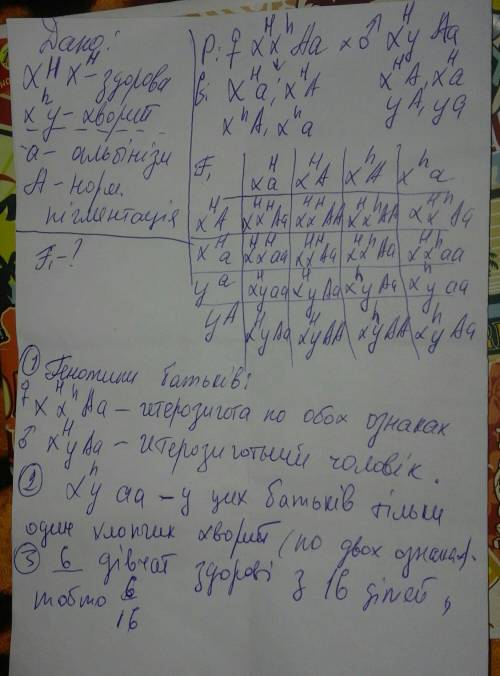 Дано:
X^H X^H - здорова
x^h y - хворий
a - альбінізм
A - норм.
пігментація
F₁ - ?
P: ♀ X^H x^h Aa x ♂ X^H y Aa
G: X^H a, X^H A X^H A, X^H a
x^h A, x^h a yA, ya
F₁ X^H a X^H A x^h A x^h a
X^H A X^H X^H Aa X^H X^H AA X^H x^h AA X^H x^h Aa
X^H a X^H X^H aa X^H X^H Aa X^H x^h Aa X^H x^h aa
ya X^H y aa X^H y Aa x^h y Aa x^h y aa
yA X^H y Aa X^H y AA x^h y AA x^h y Aa
① Генотипи батьків:
♀ X^H x^h Aa - гетерозигота по обох ознаках
♂ X^H y Aa - гетерозиготний чоловік.
② x^h y aa - у цих батьків тільки
один хлопчик хворий (по двох ознаках).
③ 6 дівчат здорові з 16 дітей,
тобто 6/16